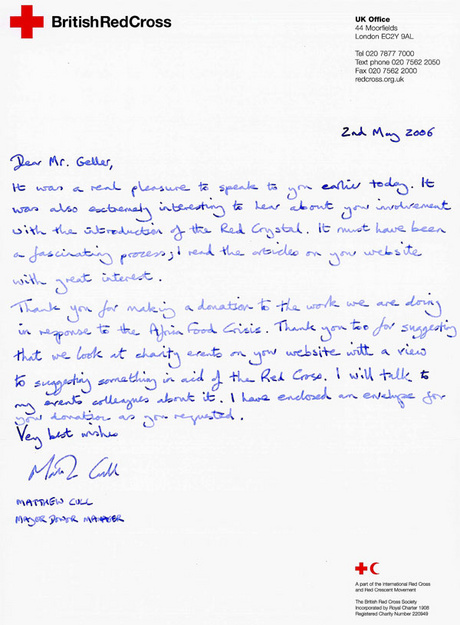 BritishRedCross
UK Office
44 Moorfields
London EC2Y 9AL
Tel 020 7877 7000
Text phone 020 7562 2050
Fax 020 7562 2000
redcross.org.uk
2nd May 2006
Dear Mr. Geller,
It was a real pleasure to speak to you earlier today. It
was also extremely interesting to hear about your involvement
with the introduction of the Red Crystal. It must have been
a fascinating process; I read the articles on your website
with great interest.
Thank you for making a donation to the work we are doing
in response to the Africa Food Crisis. Thank you too for suggesting
that we look at charity events on your website with a view
to suggesting something in aid of the Red Cross. I will talk to
my events colleagues about it. I have enclosed an envelope for
your donation as you requested.
Very best wishes
MATTHEW CULL
MAJOR DONOR MANAGER
A part of the International Red Cross
and Red Crescent Movement
The British Red Cross Society
Incorporated by Royal Charter 1908
Registered Charity Number 220949